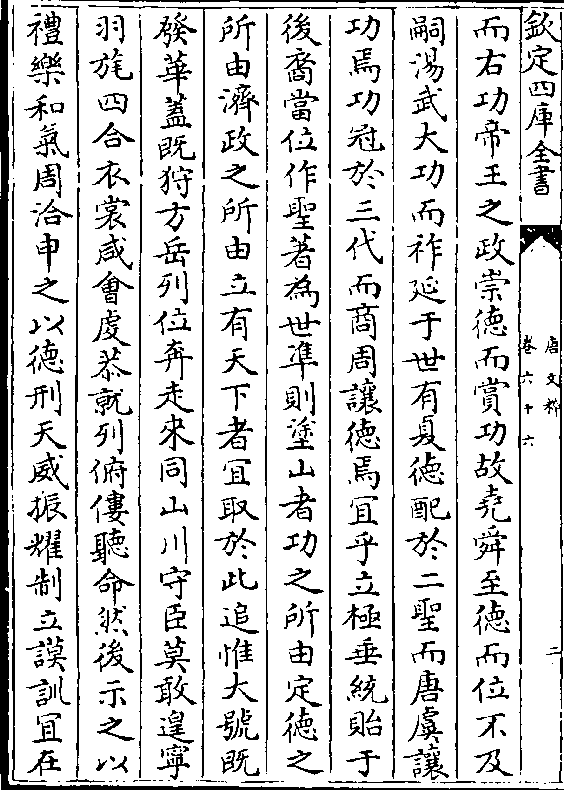 欽定四庫全書
唐文粹
卷六十六
二
而右功帝王之政崇德而賞功故堯舜至德而位不及
嗣湯武大功而祚延于世有夏德配於二聖而唐虞讓
功焉功冠於三代而商周讓德焉宜乎立極垂統貽于
後裔當位作聖著為世準則塗山者功之所由定德之
所由濟政之所由立有天下者冝取於此追惟大號既
發華蓋既狩方岳列位奔走來同山川守臣莫敢遑寧
羽旄四合衣裳咸會虔恭就列俯僂聽命然後示之以
禮樂和氣周洽申之以德刑天威振耀制立謨訓冝在